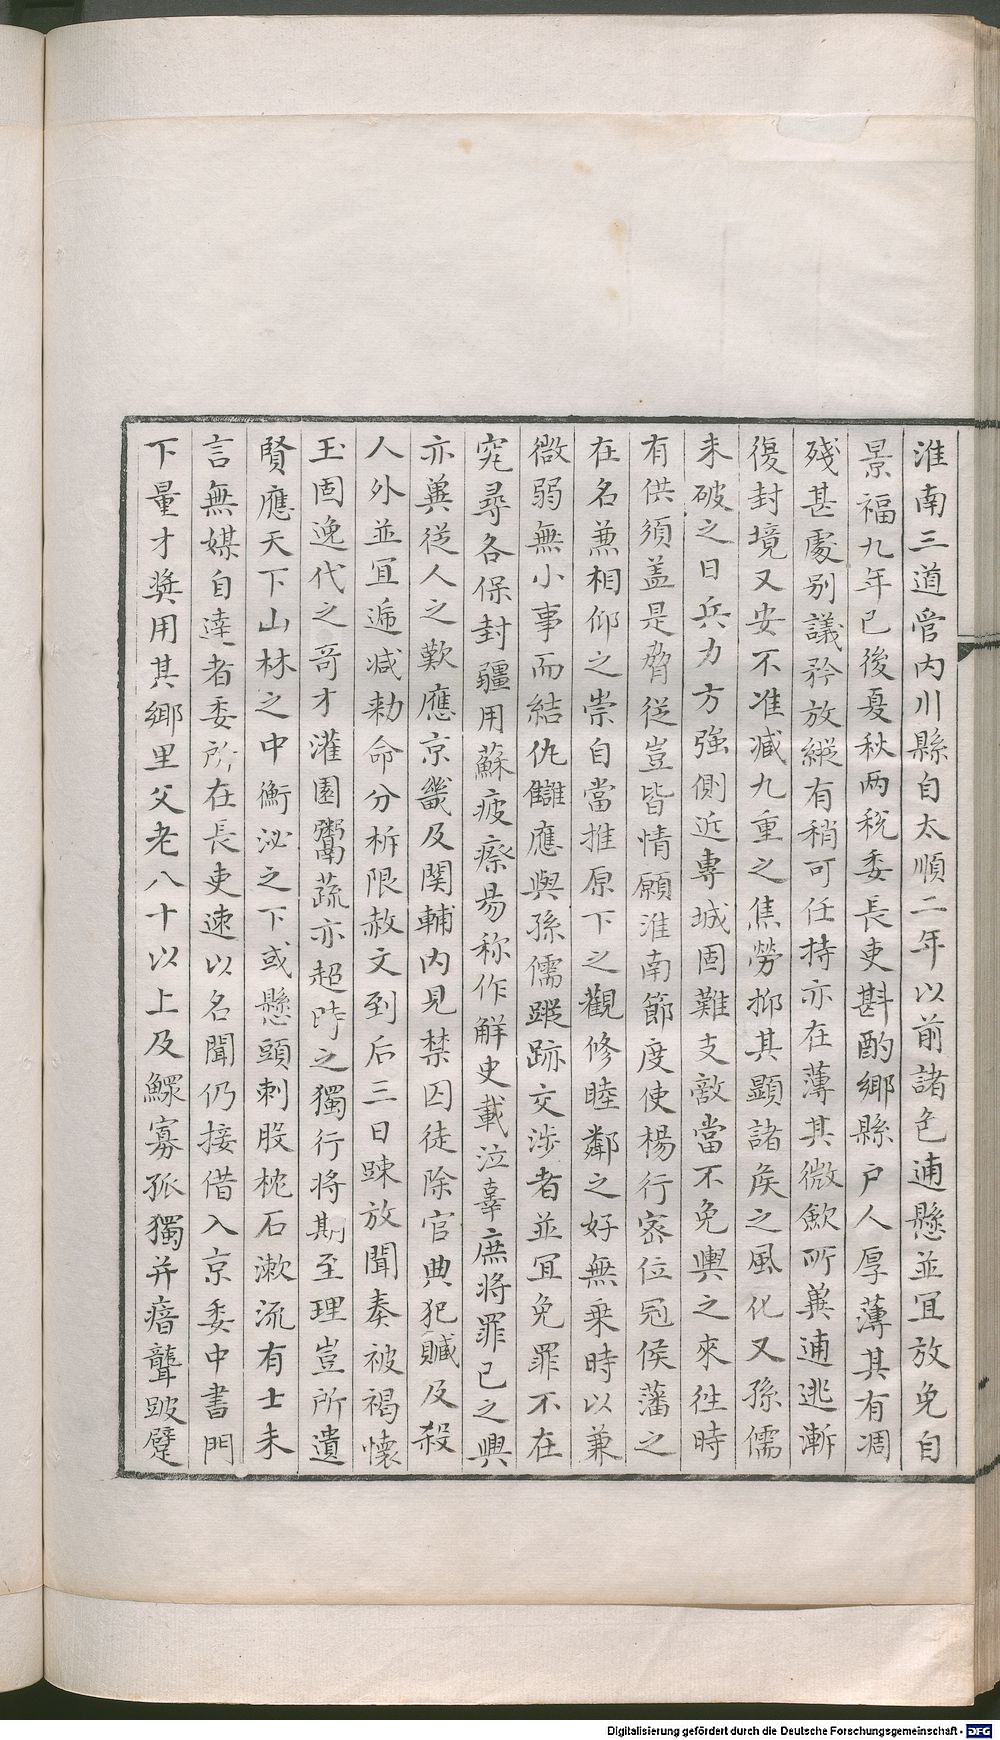 淮南三道管内川縣自太順二年以前諸色逋懸並冝放免自
景福九年已後夏秋两税委長吏斟酌鄉縣户人厚薄其有凋
殘甚處别議矜放縱有稍可任持亦在薄其微歛所兾逋逃漸
復封境又安不准减九重之焦勞抑其顯諸矦之風化又孫儒
未破之日兵力方強側近專城固難支敵當不免輿之來徃時
有供須盖是脅從豈皆情願淮南節度使楊行宻位冠侯藩之
在名兼相仰之崇自當推原下之觀修睦鄰之好無乗時以兼
微弱無小事而結仇讎應與孫儒蹤跡交渉者並冝免罪不在
究尋各保封疆用蘇疲瘵昜称作解史載泣辜庶將罪已之興
亦兾從人之歎應京畿及関輔内見禁囚徒除官典犯贓及殺
人外並冝遞减勑命分析限赦文到后三日踈放聞奏被褐懷
玉固逸代之竒才灌園鬻蔬亦超時之獨行将期至理豈所遺
賢應天下山林之中衡泌之下或懸頭刺股枕石漱流有士未
言無媒自達者委所在長吏速以名聞仍接借入京委中書門
下量才奬用其鄉里父老八十以上及鰥寡孤獨并瘖聾跛躄
Digitalisierung gefördert durch die Deutsche Forschungsgemeinschaft - DFG